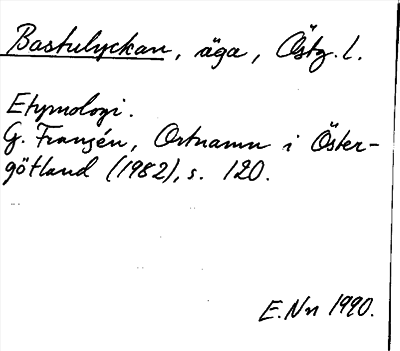 Bastulyckan, äga, Östg. l.
Etymologi.
G. Franzén, Ortnamn i Öster-
götland (1982), s. 120.
E. Nn 1990.